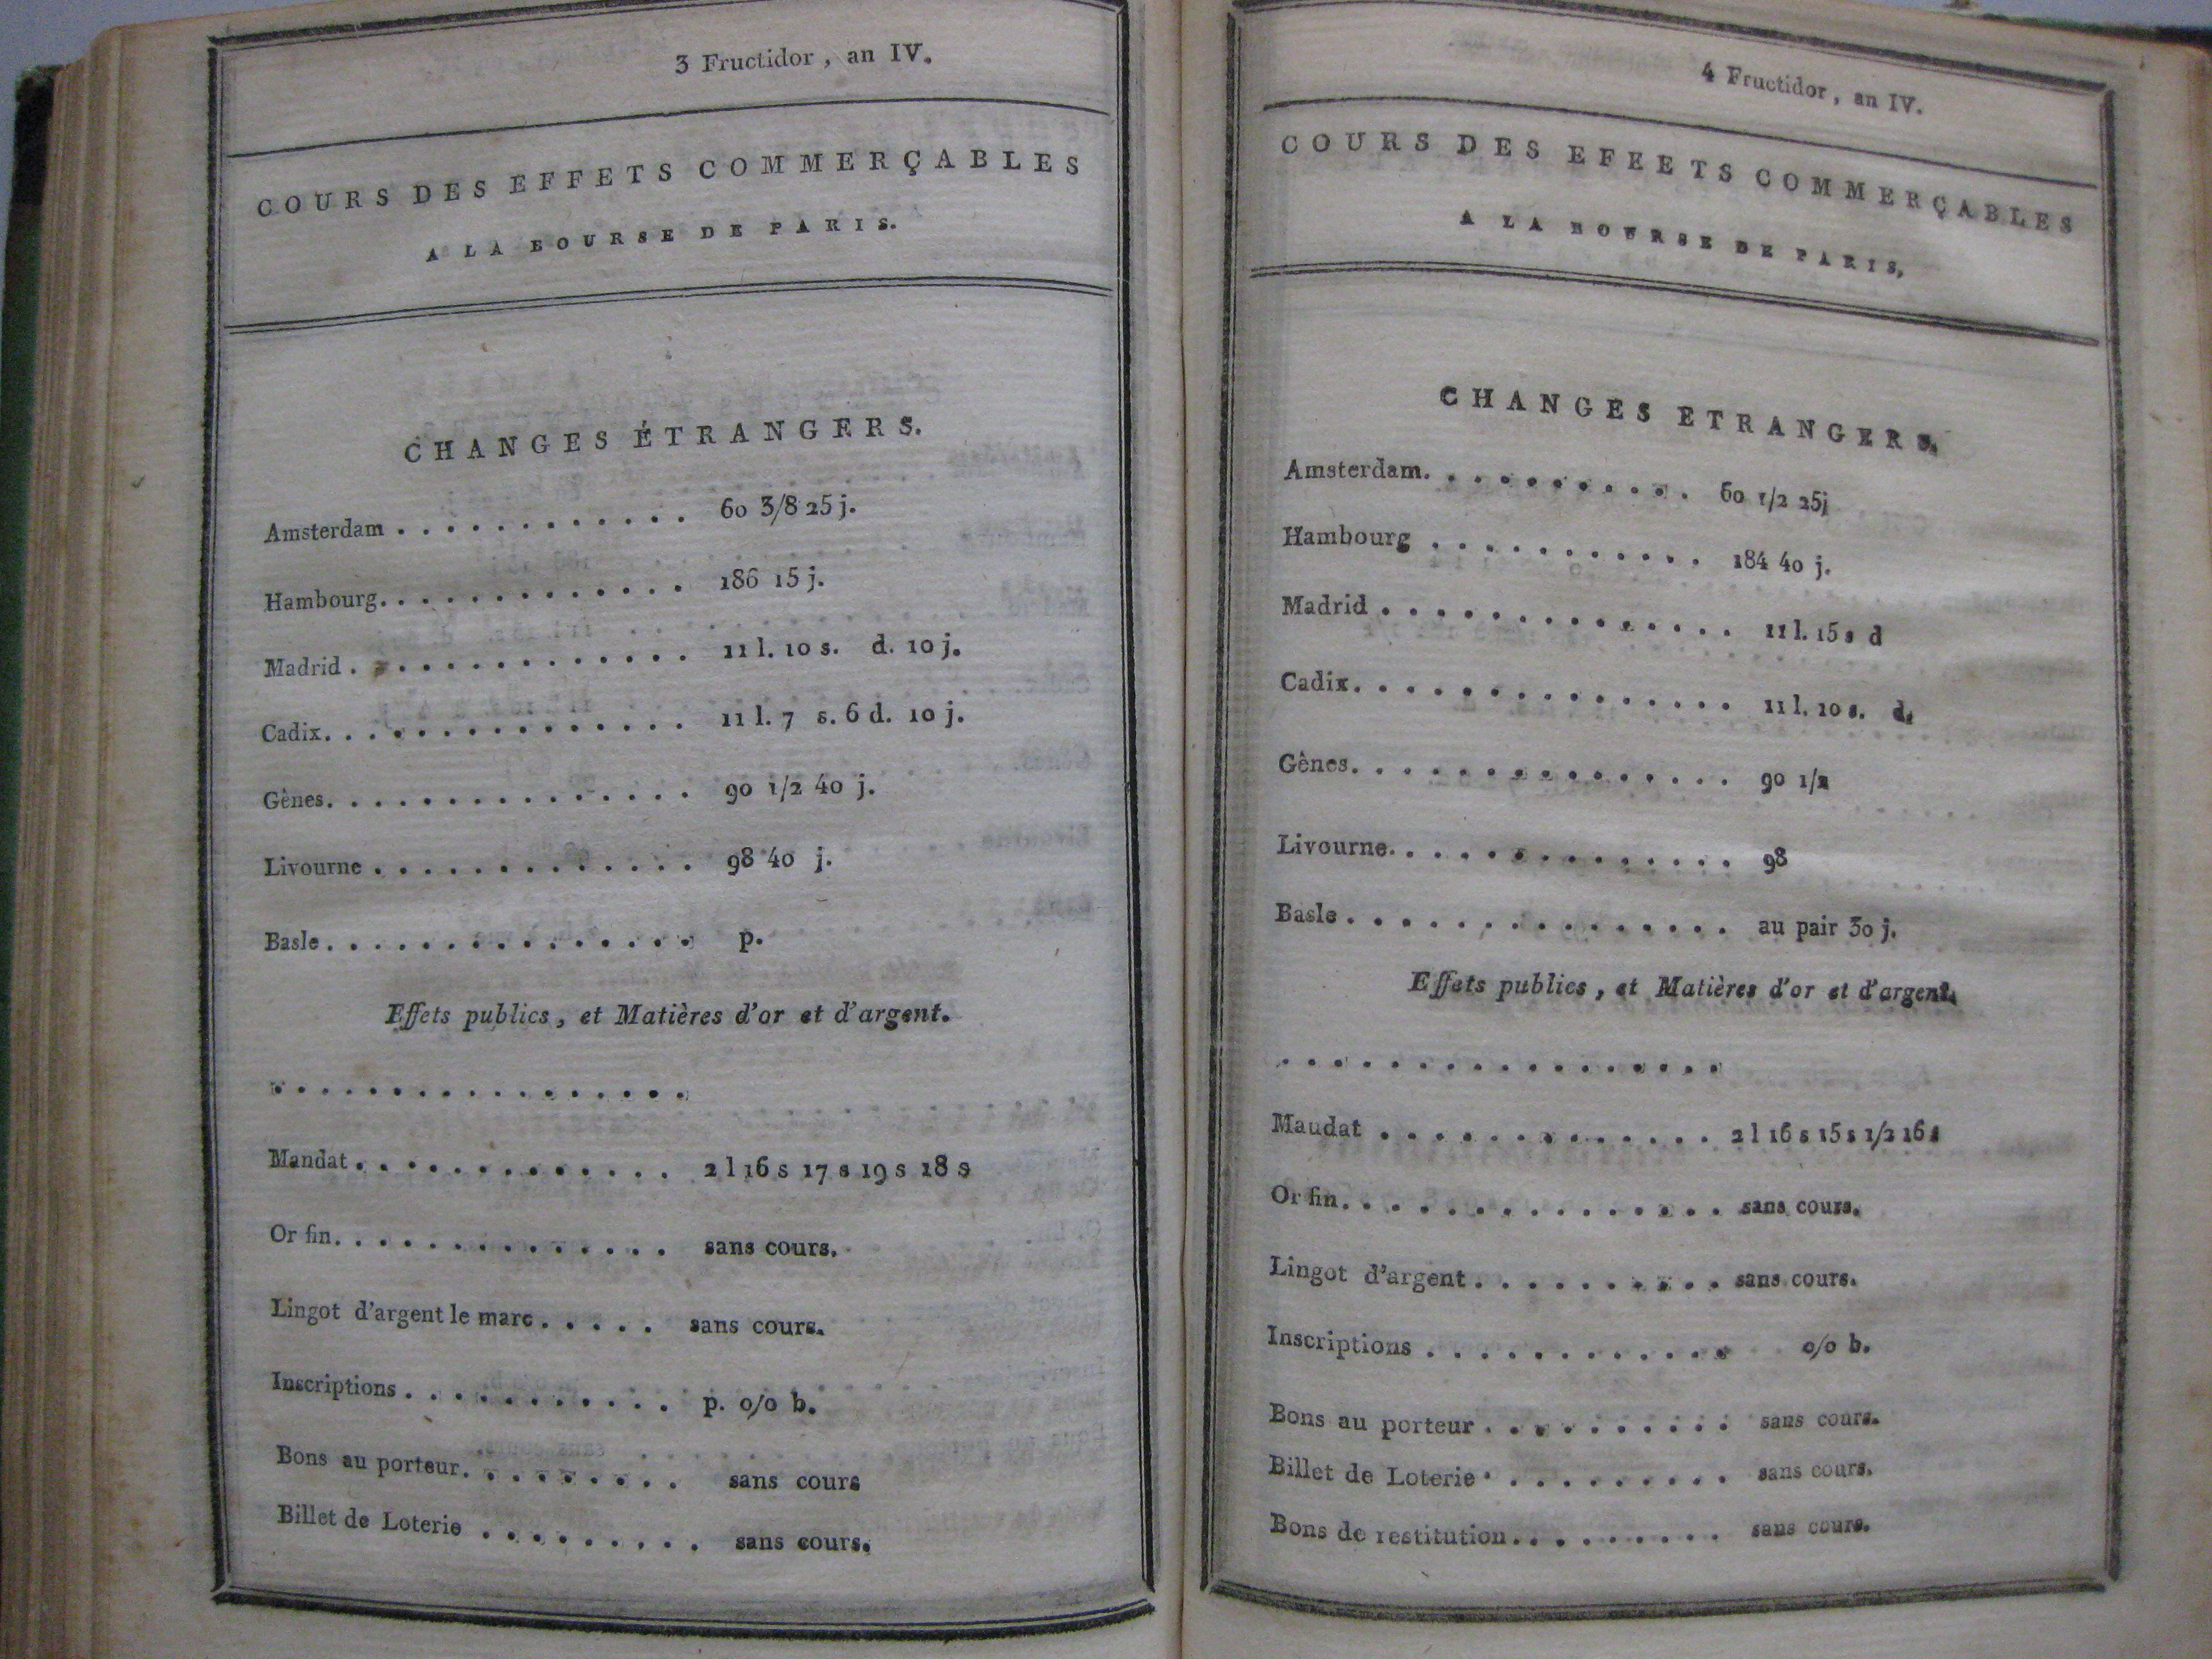 3 Fructidor, an IV.
COURS DES EFFETS COMMERÇABLES
A LA BOURSE DE PARIS.
CHANGES ÉTRANGERS.
Amsterdam . . . . . . . . . . . . 60 3/8 25 j.
Hambourg. . . . . . . . . . . . . 186 15 j.
Madrid . . . . . . . . . . . . . 11 l. 10 s. d. 10 j.
Cadix. . . . . . . . . . . . . . 11 l. 7 s. 6 d. 10 j.
Gènes. . . . . . . . . . . . . . 90 1/2 40 j.
Livourne . . . . . . . . . . . . . 98 40 j.
Basle. . . . . . . . . . . . . . p.
Effets publics, et Matières d'or et d'argent.
. . . . . . . . . . . . . . . . .
Mandat. . . . . . . . . . . . . 2 l 16 s 17 s 19 s 18 s
Or fin. . . . . . . . . . . . . . sans cours.
Lingot d'argent le marc . . . . . sans cours.
Inscriptions . . . . . . . . . . . p. o/o b.
Bons au porteur. . . . . . . . . sans cours
Billet de Loterie . . . . . . . . . sans cours.
4 Fructidor, an IV.
COURS DES EFEETS COMMERÇABLES
A LA BOURSE DE PARIS,
CHANGES ETRANGERS.
Amsterdam. . . . . . . . . . . 60 1/2 25j
Hambourg . . . . . . . . . . . 184 40 j.
Madrid . . . . . . . . . . . . . . 11 l. 15 s d
Cadix. . . . . . . . . . . . . . . 11 l. 10 s. d.
Gênes. . . . . . . . . . . . . . . 90 1/2
Livourne. . . . . . . . . . . . . . 98
Basle . . . . . . . . . . . . . . . au pair 30 j.
Effets publics, et Matières d'or et d'argent.
. . . . . . . . . . . . . . . . .
Maudat . . . . . . . . . . . . . 2 l 16 s 15 s 1/2 16 s
Or fin. . . . . . . . . . . . . . . sans cours.
Lingot d'argent . . . . . . . . . . sans cours.
Inscriptions . . . . . . . . . . . . o/o b.
Bons au porteur . . . . . . . . . . sans cours.
Billet de Loterie . . . . . . . . . . sans cours.
Bons de restitution . . . . . . . . . sans cours.